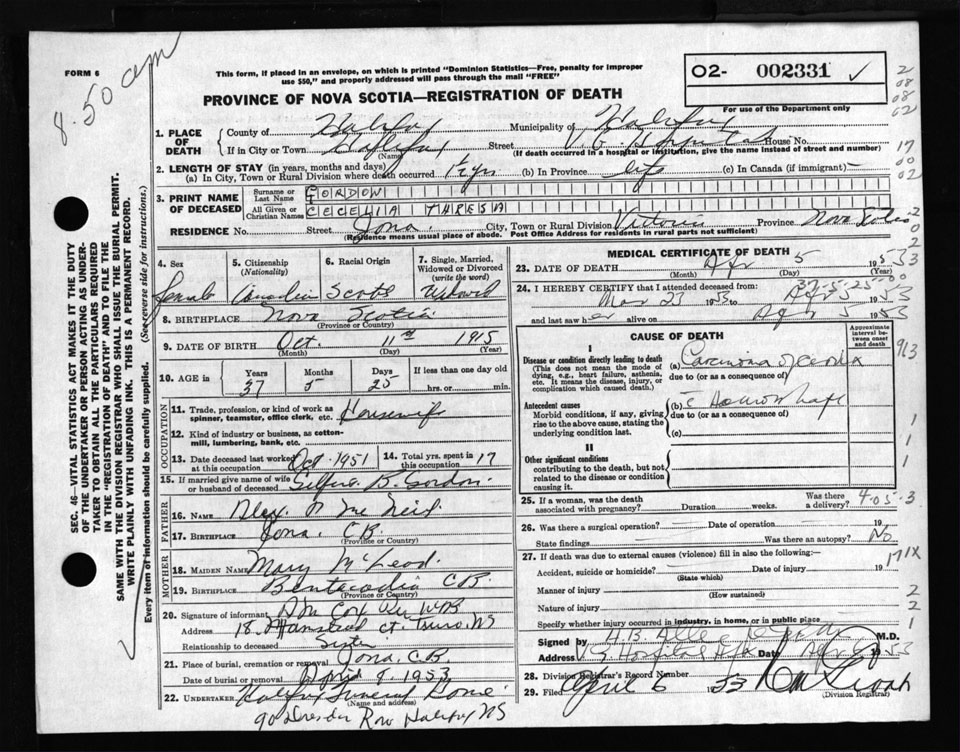 8.50 am
FORM 6
This form, if placed in an envelope, on which is printed "Dominion Statistics—Free, penalty for improper
use $50," and properly addressed will pass through the mail "FREE"
O2- 002331 ✓
PROVINCE OF NOVA SCOTIA—REGISTRATION OF DEATH
For use of the Department only
1. PLACE OF DEATH County of Halifax Municipality of Halifax
If in City or Town Halifax (Name) Street V.G. Hospital House No.
(If death occurred in a hospital or institution, give the name instead of street and number)
2. LENGTH OF STAY (in years, months and days)
(a) In City, Town or Rural Division where death occurred (b) In Province life (c) In Canada (if immigrant)
3. PRINT NAME OF DECEASED Surname or Last Name GORDON
All Given or Christian Names CECELIA THRESA
RESIDENCE No. Street Iona City, Town or Rural Division Victoria Province Nova Scotia
(Residence means usual place of abode. Post Office Address for residents in rural parts not sufficient)
4. Sex Female
5. Citizenship (Nationality) Canadian
6. Racial Origin Scots
7. Single, Married, Widowed or Divorced (write the word)
8. BIRTHPLACE Nova Scotia (Province or Country)
9. DATE OF BIRTH Oct. 11th 1915
(Month) (Day) (Year)
10. AGE in Years Months Days If less than one day old
37 5 25 hrs. or min.
OCCUPATION
11. Trade, profession, or kind of work as spinner, teamster, office clerk, etc. Housewife
12. Kind of industry or business, as cotton-mill, lumbering, bank, etc.
13. Date deceased last worked at this occupation Oct 1951 14. Total yrs. spent in this occupation 17
15. If married give name of wife or husband of deceased B. Gordon
FATHER
16. NAME Alex. McNeil
17. BIRTHPLACE Iona, C.B. (Province or Country)
MOTHER
18. MAIDEN NAME Mary McLeod
19. BIRTHPLACE C.B. (Province or Country)
20. Signature of informant
Address 18 Ct. Truro, NS
Relationship to deceased Sister
21. Place of burial, cremation or removal Iona, C.B.
Date of burial or removal April 1953
22. UNDERTAKER Halifax Funeral Home
(Name and address)
90 Dresden Row Halifax NS
MEDICAL CERTIFICATE OF DEATH
23. DATE OF DEATH Apr 5 1953
(Month) (Day) (Year)
24. I HEREBY CERTIFY that I attended deceased from: 37-5-25
Mar 23 1953 Apr 5 1953
and last saw her alive on Apr 5 1953
CAUSE OF DEATH
Approximate interval between onset and death
I
Disease or condition directly leading to death (a) Carcinoma of Cervix
(This does not mean the mode of dying, e.g., heart failure, asthenia, etc. It means the disease, injury, or complication which caused death.)
due to (or as a consequence of)
Antecedent causes (b)
Morbid conditions, if any, giving rise to the above cause, stating the underlying condition last.
due to (or as a consequence of)
(c)
II
Other significant conditions contributing to the death, but not related to the disease or condition causing it.
25. If a woman, was the death associated with pregnancy? Duration weeks. Was there a delivery?
26. Was there a surgical operation? Date of operation 19
State findings Was there an autopsy? No
27. If death was due to external causes (violence) fill in also the following:-
Accident, suicide or homicide? (State which) Date of injury 19
Manner of injury (How sustained)
Nature of injury
Specify whether injury occurred in industry, in home, or in public place
Signed by M.D.
Address V.G. Hospital Hfx Date Apr 1953
28. Division Registrar's Record Number
29. Filed April 6 1953
(Division Registrar)
SEC. 46—VITAL STATISTICS ACT MAKES IT THE DUTY
OF THE UNDERTAKER OR PERSON ACTING AS UNDER-
TAKER TO OBTAIN ALL THE PARTICULARS REQUIRED
IN THE "REGISTRATION OF DEATH" AND TO FILE THE
SAME WITH THE DIVISION REGISTRAR WHO SHALL ISSUE THE BURIAL PERMIT.
WRITE PLAINLY WITH UNFADING INK. THIS IS A PERMANENT RECORD.
Every item of information should be carefully supplied. (See reverse side for instructions.)